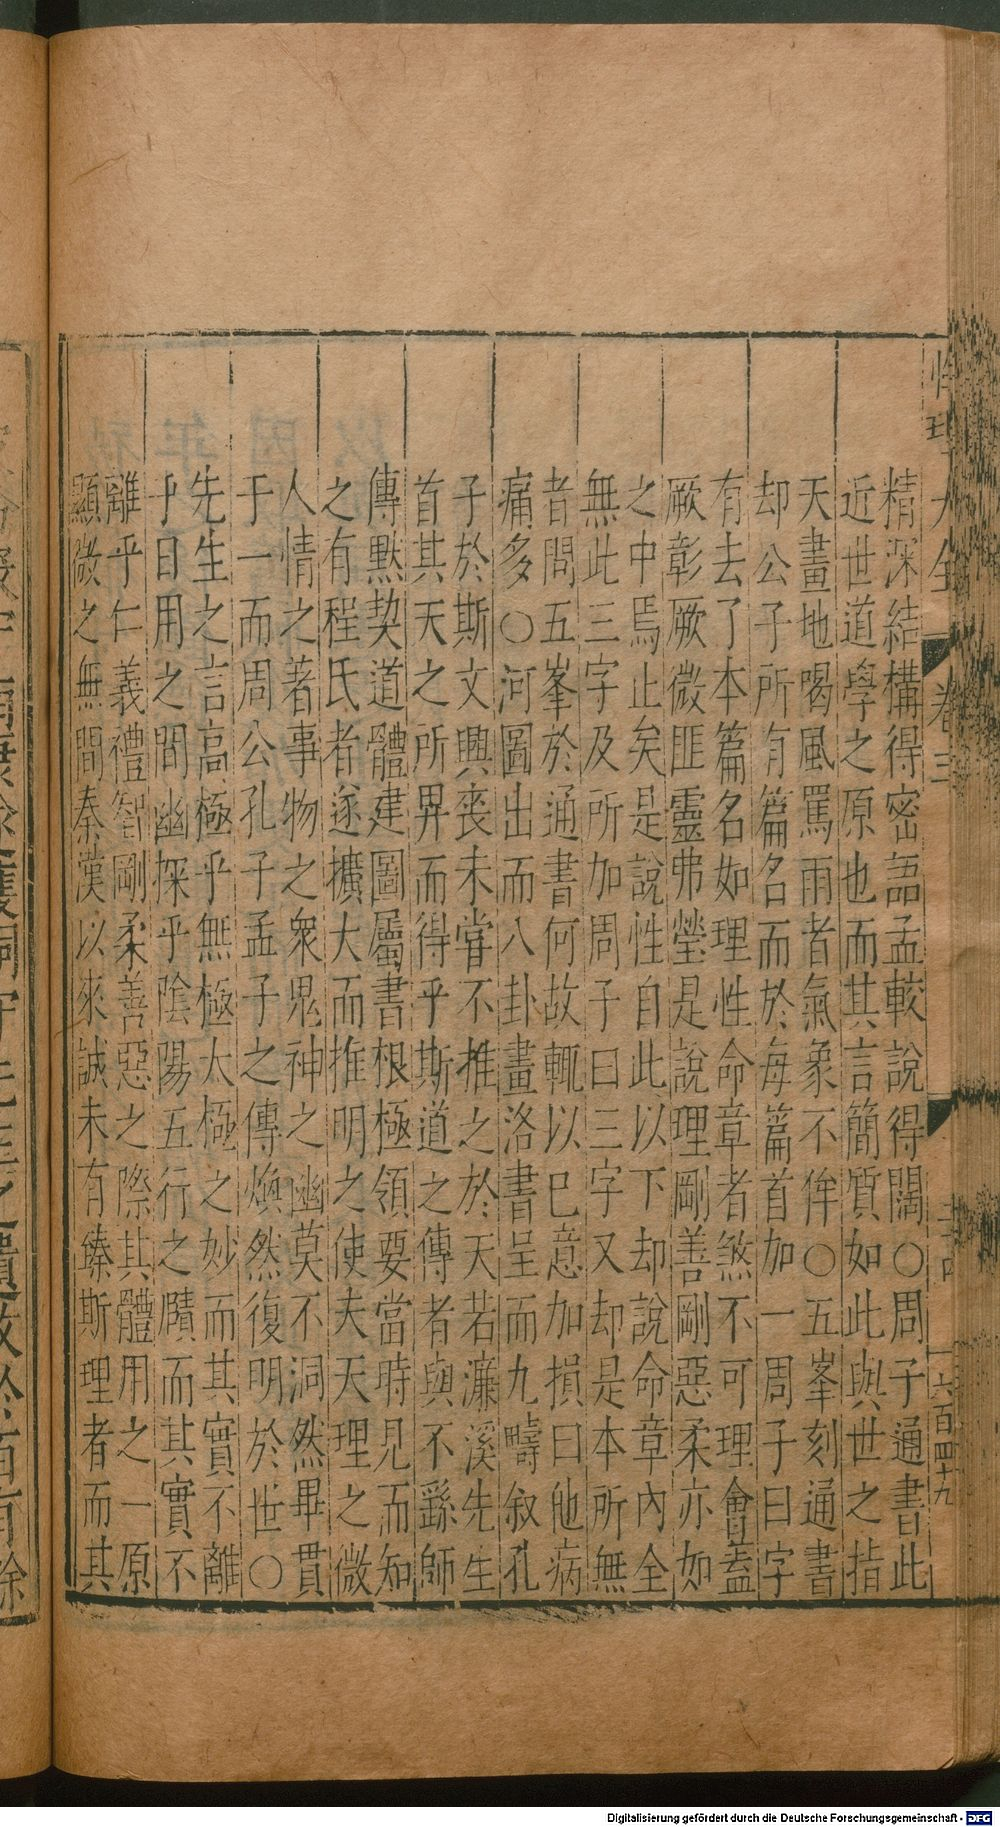 精深結構得密語孟較說得闊○周子通書此
近世道學之原也而其言簡質如此與世之指
天畫地喝風罵雨者氣象不侔○五峯刻通書
却公子所有篇名而於每篇首加一周子曰字
有去了本篇名如理性命章者煞不可理會蓋
厥彰厥微匪靈弗瑩是說理剛善剛惡柔亦如
之中焉止矣是說性自此以下却說命章內全
無此三字及所加周子曰三字又却是本所無
者問五峯於通書何故輒以己意加損曰他病
痛多○河圖出而八卦畫洛書呈而九疇叙孔
子於斯文興喪未嘗不推之於天若濂溪先生
首其天之所畀而得乎斯道之傳者與不繇師
傳默契道體建圖屬書根極領要當時見而知
之有程氏者遂擴大而推明之使夫天理之微
人情之著事物之衆鬼神之幽莫不洞然畢貫
于一而周公孔子孟子之傳煥然復明於世○
先生之言高極乎無極太極之妙而其實不離
乎日用之間幽探乎陰陽五行之賾而其實不
離乎仁義禮智剛柔善惡之際其體用之一原
顯微之無間秦漢以來誠未有臻斯理者而其
大全
卷三
六百四十九
Digitalisierung gefördert durch die Deutsche Forschungsgemeinschaft - DFG